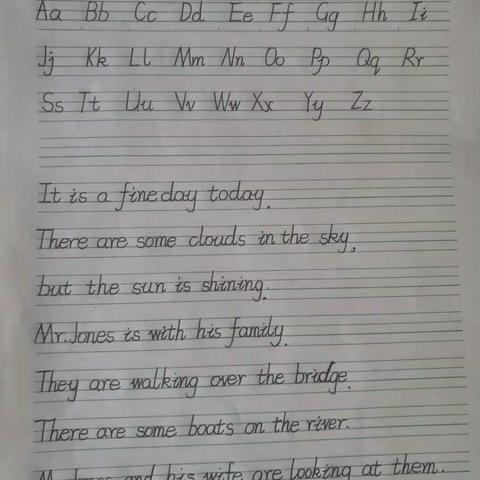 Aa Bb Cc Dd Ee Ff Gg Hh Ii
Jj Kk Ll Mm Nn Oo Pp Qq Rr
Ss Tt Uu Vv Ww Xx Yy Zz
It is a fine day today.
There are some clouds in the sky,
but the sun is shining.
Mr. Jones is with his family.
They are walking over the bridge.
There are some boats on the river.
Mr. Jones and his wife are looking at them.